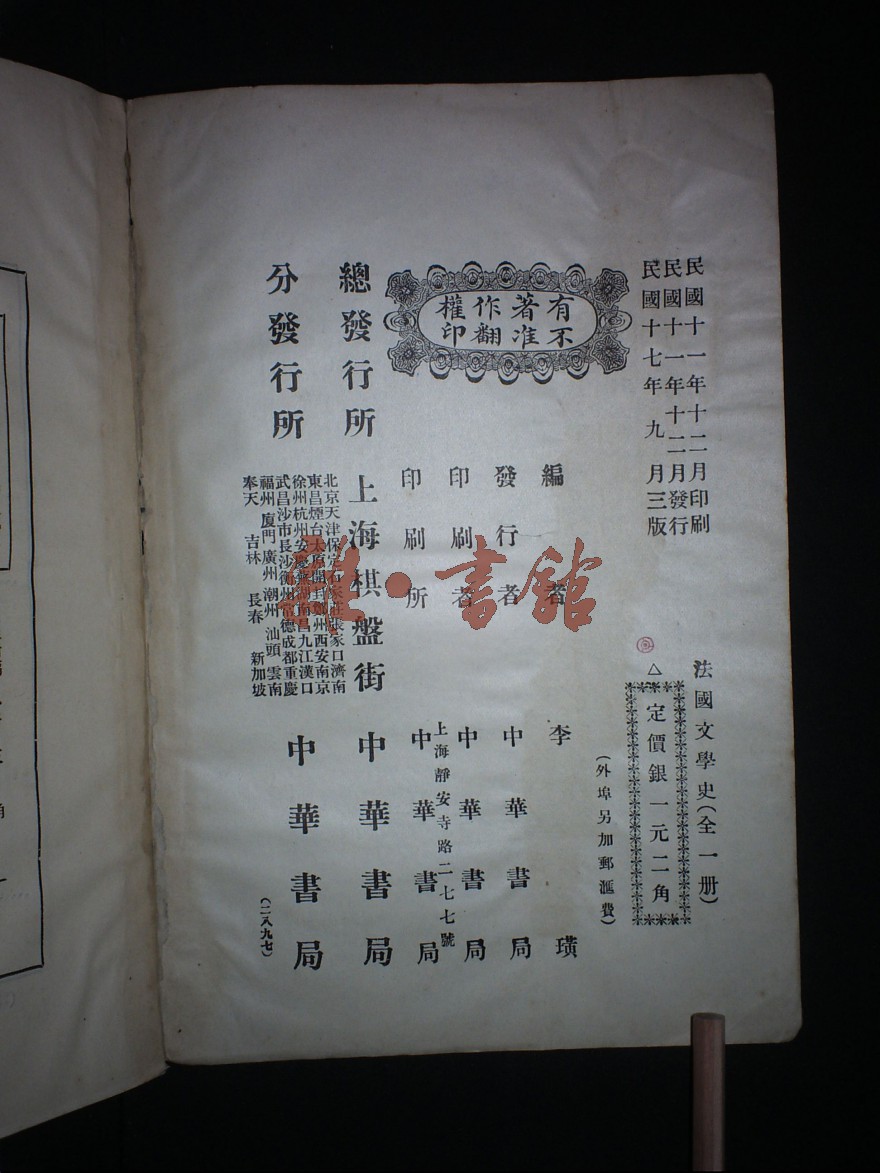 民國十一年十二月印刷
民國十一年十二月發行
民國十七年九月三版
法國文學史(全一册)
△定價銀一元二角
(外埠另加郵匯費)
有著作權
不准翻印
編者 李璜
發行者 中華書局
印刷者 中華書局
上海靜安寺路二七七號
印刷所 中華書局
總發行所 上海棋盤街 中華書局
分發行所
北京天津保定石家莊張家口濟南
東昌煙台太原開封鄭州西安南京
徐州杭州安慶蕪湖南昌九江漢口
武昌沙市長沙衡州常德成都重慶
福州廈門廣州潮州汕頭雲南
奉天 吉林 長春 新加坡
中華書局
(二八九七)
書館